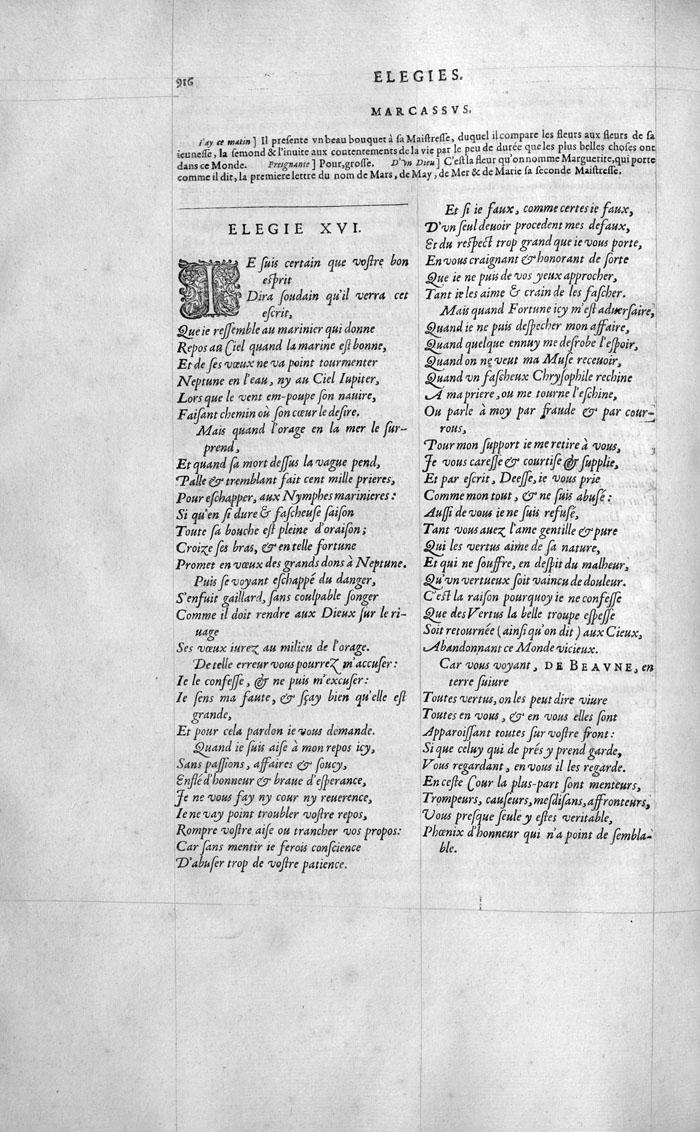 916
ELEGIES.
MARCASSVS.
i'ay ce matin ] Il presente vn beau bouquet à sa Maistresse, duquel il compare les fleurs aux fleurs de sa
ieunesse, la semond & l'inuite aux contentemens de la vie par le peu de durée que les plus belles choses ont
dans ce Monde. Preignante ] Pour, grosse. D'vn Dieu ] C'est la fleur qu'on nomme Marguerite, qui porte
comme il dit, la premiere lettre du nom de Mars, de May, de Mer & de Marie sa seconde Maistresse.
ELEGIE XVI.
IE suis certain que vostre bon
esprit
Dira soudain qu'il verra cet
escrit,
Que ie ressemble au marinier qui donne
Repos au Ciel quand la marine est bonne,
Et de ses vœux ne va point tourmenter
Neptune en l'eau, ny au Ciel Iupiter,
Lors que le vent em-poupe son nauire,
Faisant chemin où son cœur le desire.
Mais quand l'orage en la mer le sur-
prend,
Et quand sa mort dessus la vague pend,
Palle & tremblant fait cent mille prieres,
Pour eschapper, aux Nymphes marinieres:
Si qu'en si dure & fascheuse saison
Toute sa bouche est pleine d'oraison;
Croize ses bras, & en telle fortune
Promet en vœux des grands dons à Neptune.
Puis se voyant eschappé du danger,
S'enfuit gaillard, sans coulpable songer
Comme il doit rendre aux Dieux sur le ri-
uage
Ses vœux iurez au milieu de l'orage.
De telle erreur vous pourrez m'accuser:
Ie le confesse, & ne puis m'excuser:
Ie sens ma faute, & sçay bien qu'elle est
grande,
Et pour cela pardon ie vous demande.
Quand ie suis aise à mon repos icy,
Sans passions, affaires & soucy,
Enflé d'honneur & braue d'esperance,
Je ne vous fay ny cour ny reuerence,
Ie ne vay point troubler vostre repos,
Rompre vostre aise ou trancher vos propos:
Car sans mentir ie ferois conscience
D'abuser trop de vostre patience.
Et si ie faux, comme certes ie faux,
D'vn seul deuoir procedent mes defaux,
Et du respect trop grand que ie vous porte,
En vous craignant & honorant de sorte
Que ie ne puis de vos yeux approcher,
Tant ie les aime & crain de les fascher.
Mais quand Fortune icy m'est aduersaire,
Quand ie ne puis despecher mon affaire,
Quand quelque ennuy me desrobe l'espoir,
Quand on ne veut ma Muse receuoir,
Quand vn fascheux Chrysophile rechine
A ma priere, ou me tourne l'eschine,
Ou parle à moy par fraude & par cour-
rous,
Pour mon support ie me retire à vous,
Je vous caresse & courtise & supplie,
Et par escrit, Deesse, ie vous prie
Comme mon tout, & ne suis abusé:
Aussi de vous ie ne suis refusé,
Tant vous auez l'ame gentille & pure
Qui les vertus aime de sa nature,
Et qui ne souffre, en despit du malheur,
Qu'vn vertueux soit vaincu de douleur.
C'est la raison pourquoy ie ne confesse
Que des Vertus la belle troupe espesse
Soit retournée (ainsi qu'on dit) aux Cieux,
Abandonnant ce Monde vicieux.
Car vous voyant, DE BEAVNE, en
terre suiure
Toutes vertus, on les peut dire viure
Toutes en vous, & en vous elles sont
Apparoissant toutes sur vostre front:
Si que celuy qui de prés y prend garde,
Vous regardant, en vous il les regarde.
En ceste Cour la plus-part sont menteurs,
Trompeurs, causeurs, mesdisans, affronteurs,
Vous presque seule y estes veritable,
Phœnix d'honneur qui n'a point de sembla-
ble.